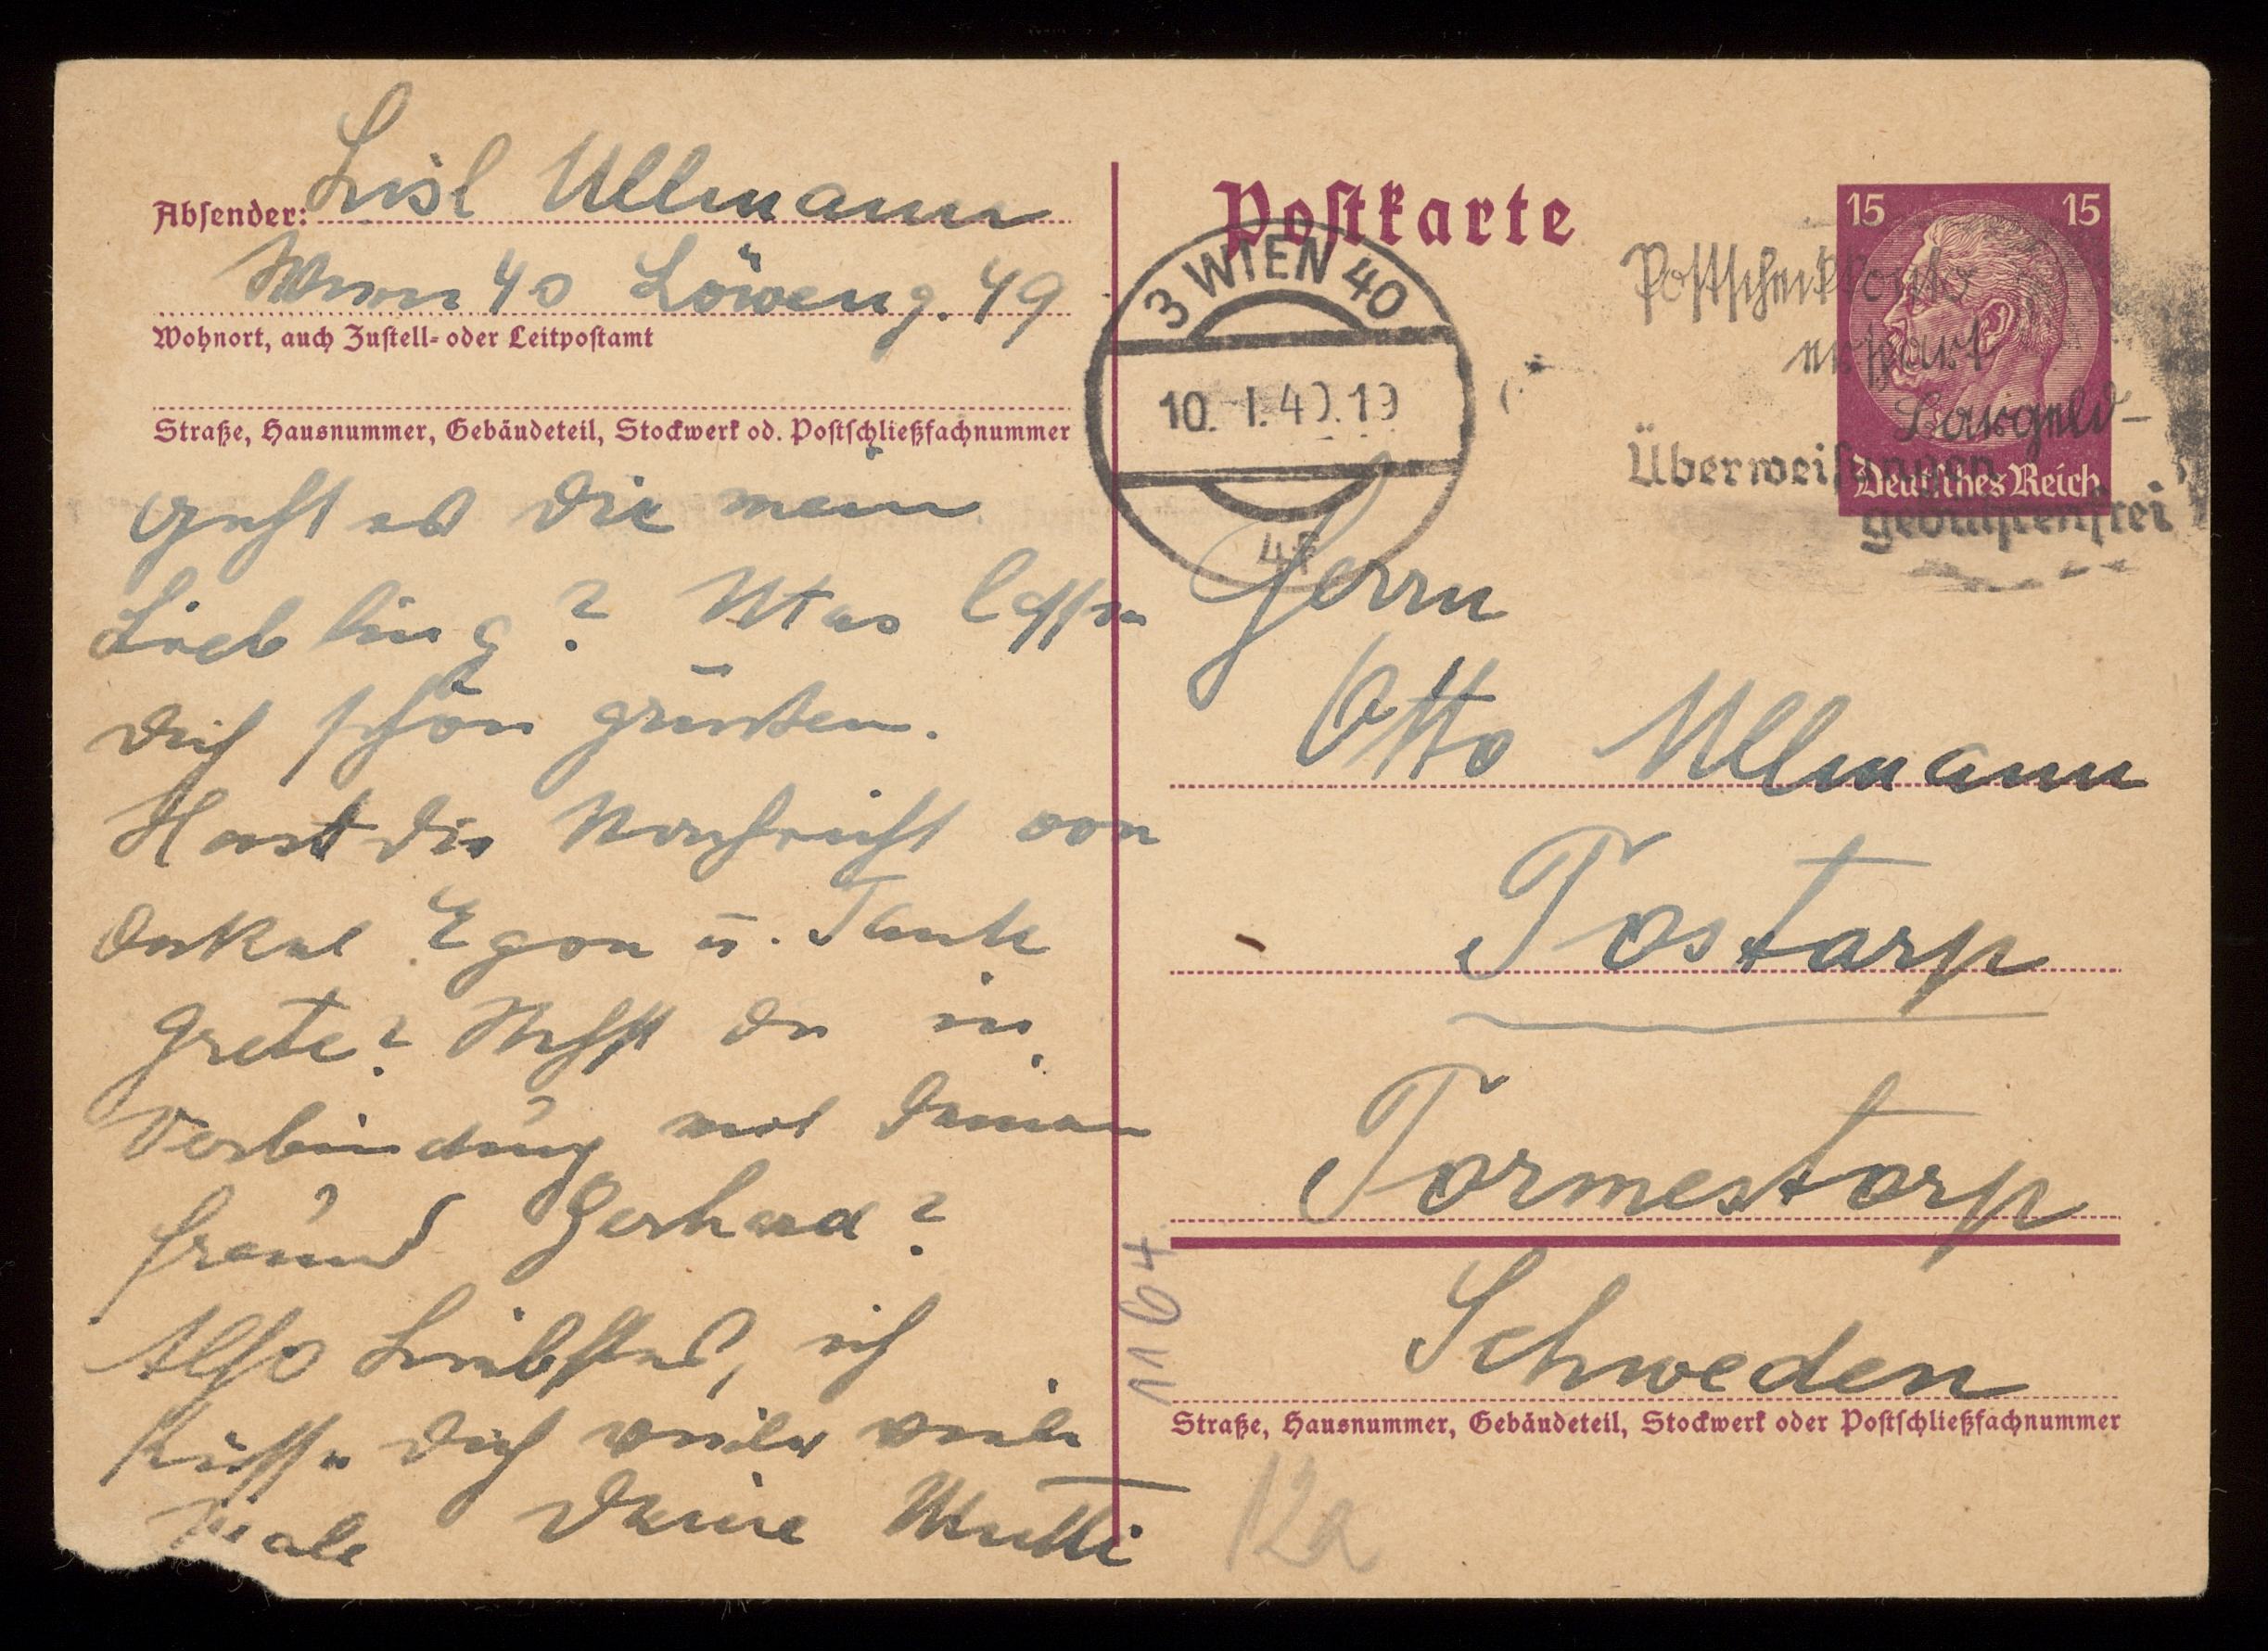 Absender: Lisl Ullmann
Wien 40 Löweng. 49
Wohnort, auch Zustell- oder Leitpostamt
Straße, Hausnummer, Gebäudeteil, Stockwerk od. Postschließfachnummer
geht es Dir mein
Liebling? lassen
Dich schön grüssen.
Hast Du Nachricht von
Onkel Egon u. Tante
Grete? Stehst Du in
Verbindung mit Deinem
Freund Gerhard?
Also Liebstes, ich
küsse Dich viele viele
Male Deine Mutti
Postkarte
15 15
Deutsches Reich
3 WIEN 40
10. I. 40. 19
Postscheckkonto
erspart
Bargeld-
Überweisungen
gebührenfrei
Herrn
Otto Ullmann
Tostarp
Tormestorp
Schweden
Straße, Hausnummer, Gebäudeteil, Stockwerk oder Postschließfachnummer
1164
12a